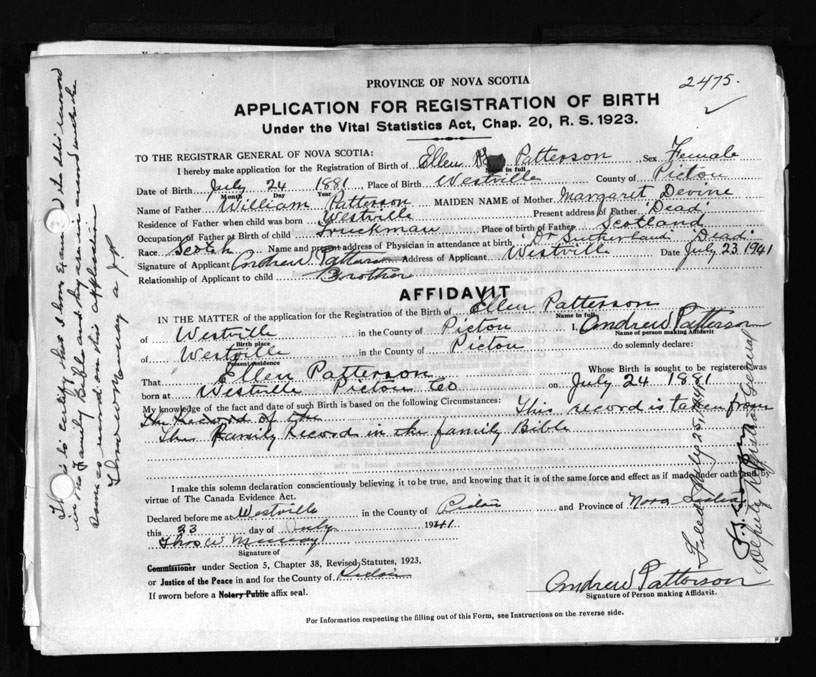 PROVINCE OF NOVA SCOTIA
2475.
APPLICATION FOR REGISTRATION OF BIRTH
Under the Vital Statistics Act, Chap. 20, R. S. 1923.
TO THE REGISTRAR GENERAL OF NOVA SCOTIA:
I hereby make application for the Registration of Birth of Ellen Patterson Sex Female
Name in full
Date of Birth July 24 1881 Place of Birth Westville County of Pictou
Month Day Year
Name of Father William Patterson MAIDEN NAME of Mother Margaret Devine
Residence of Father when child was born Westville Present address of Father Dead
Occupation of Father at Birth of child Truckman Place of birth of Father Scotland
Race Scotch Name and present address of Physician in attendance at birth Dr Sutherland Dead
Signature of Applicant Andrew Patterson Address of Applicant Westville Date July 23 1941
Relationship of Applicant to child Brother
AFFIDAVIT
IN THE MATTER of the application for the Registration of the Birth of Ellen Patterson
Name in full
of Westville in the County of Pictou I, Andrew Patterson
Birth place Name of person making Affidavit
of Westville in the County of Pictou do solemnly declare:
Present residence
That Ellen Patterson Whose Birth is sought to be registered was
born at Westville Pictou Co on July 24 1881
My knowledge of the fact and date of such Birth is based on the following Circumstances: This record is taken from
The Record of the
This Family Record in the family Bible
I make this solemn declaration conscientiously believing it to be true, and knowing that it is of the same force and effect as if made under oath and by
virtue of The Canada Evidence Act.
Declared before me at Westville in the County of Pictou and Province of Nova Scotia
this 23 day of July 1941
Thos W Murray
Signature of
Commissioner under Section 5, Chapter 38, Revised Statutes, 1923,
or Justice of the Peace in and for the County of Pictou
If sworn before a Notary Public affix seal.
Andrew Patterson
Signature of Person making Affidavit.
For Information respecting the filling out of this Form, see Instructions on the reverse side.
This is to certify that I have examined the record
in the Family Bible and they are in accordance
same as read on this application
Thos W Murray a J P
Filed July 25, 1941
Deputy Registrar General